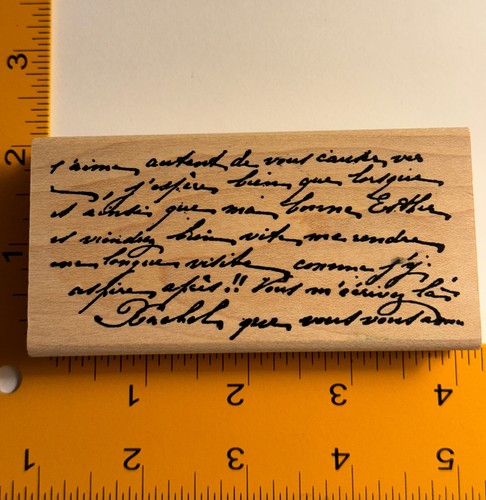 t'aime autant de vous causer ver
, j'espère bien que lorsque
et ainsi que ma bonne Esther
et viendrez bien vite me rendre
une longue visite comme j'y
aspire après !! Vous m'écrivez là
Rachel que vous vous
3
2
1
1 2 3 4
1 2 3 4 5